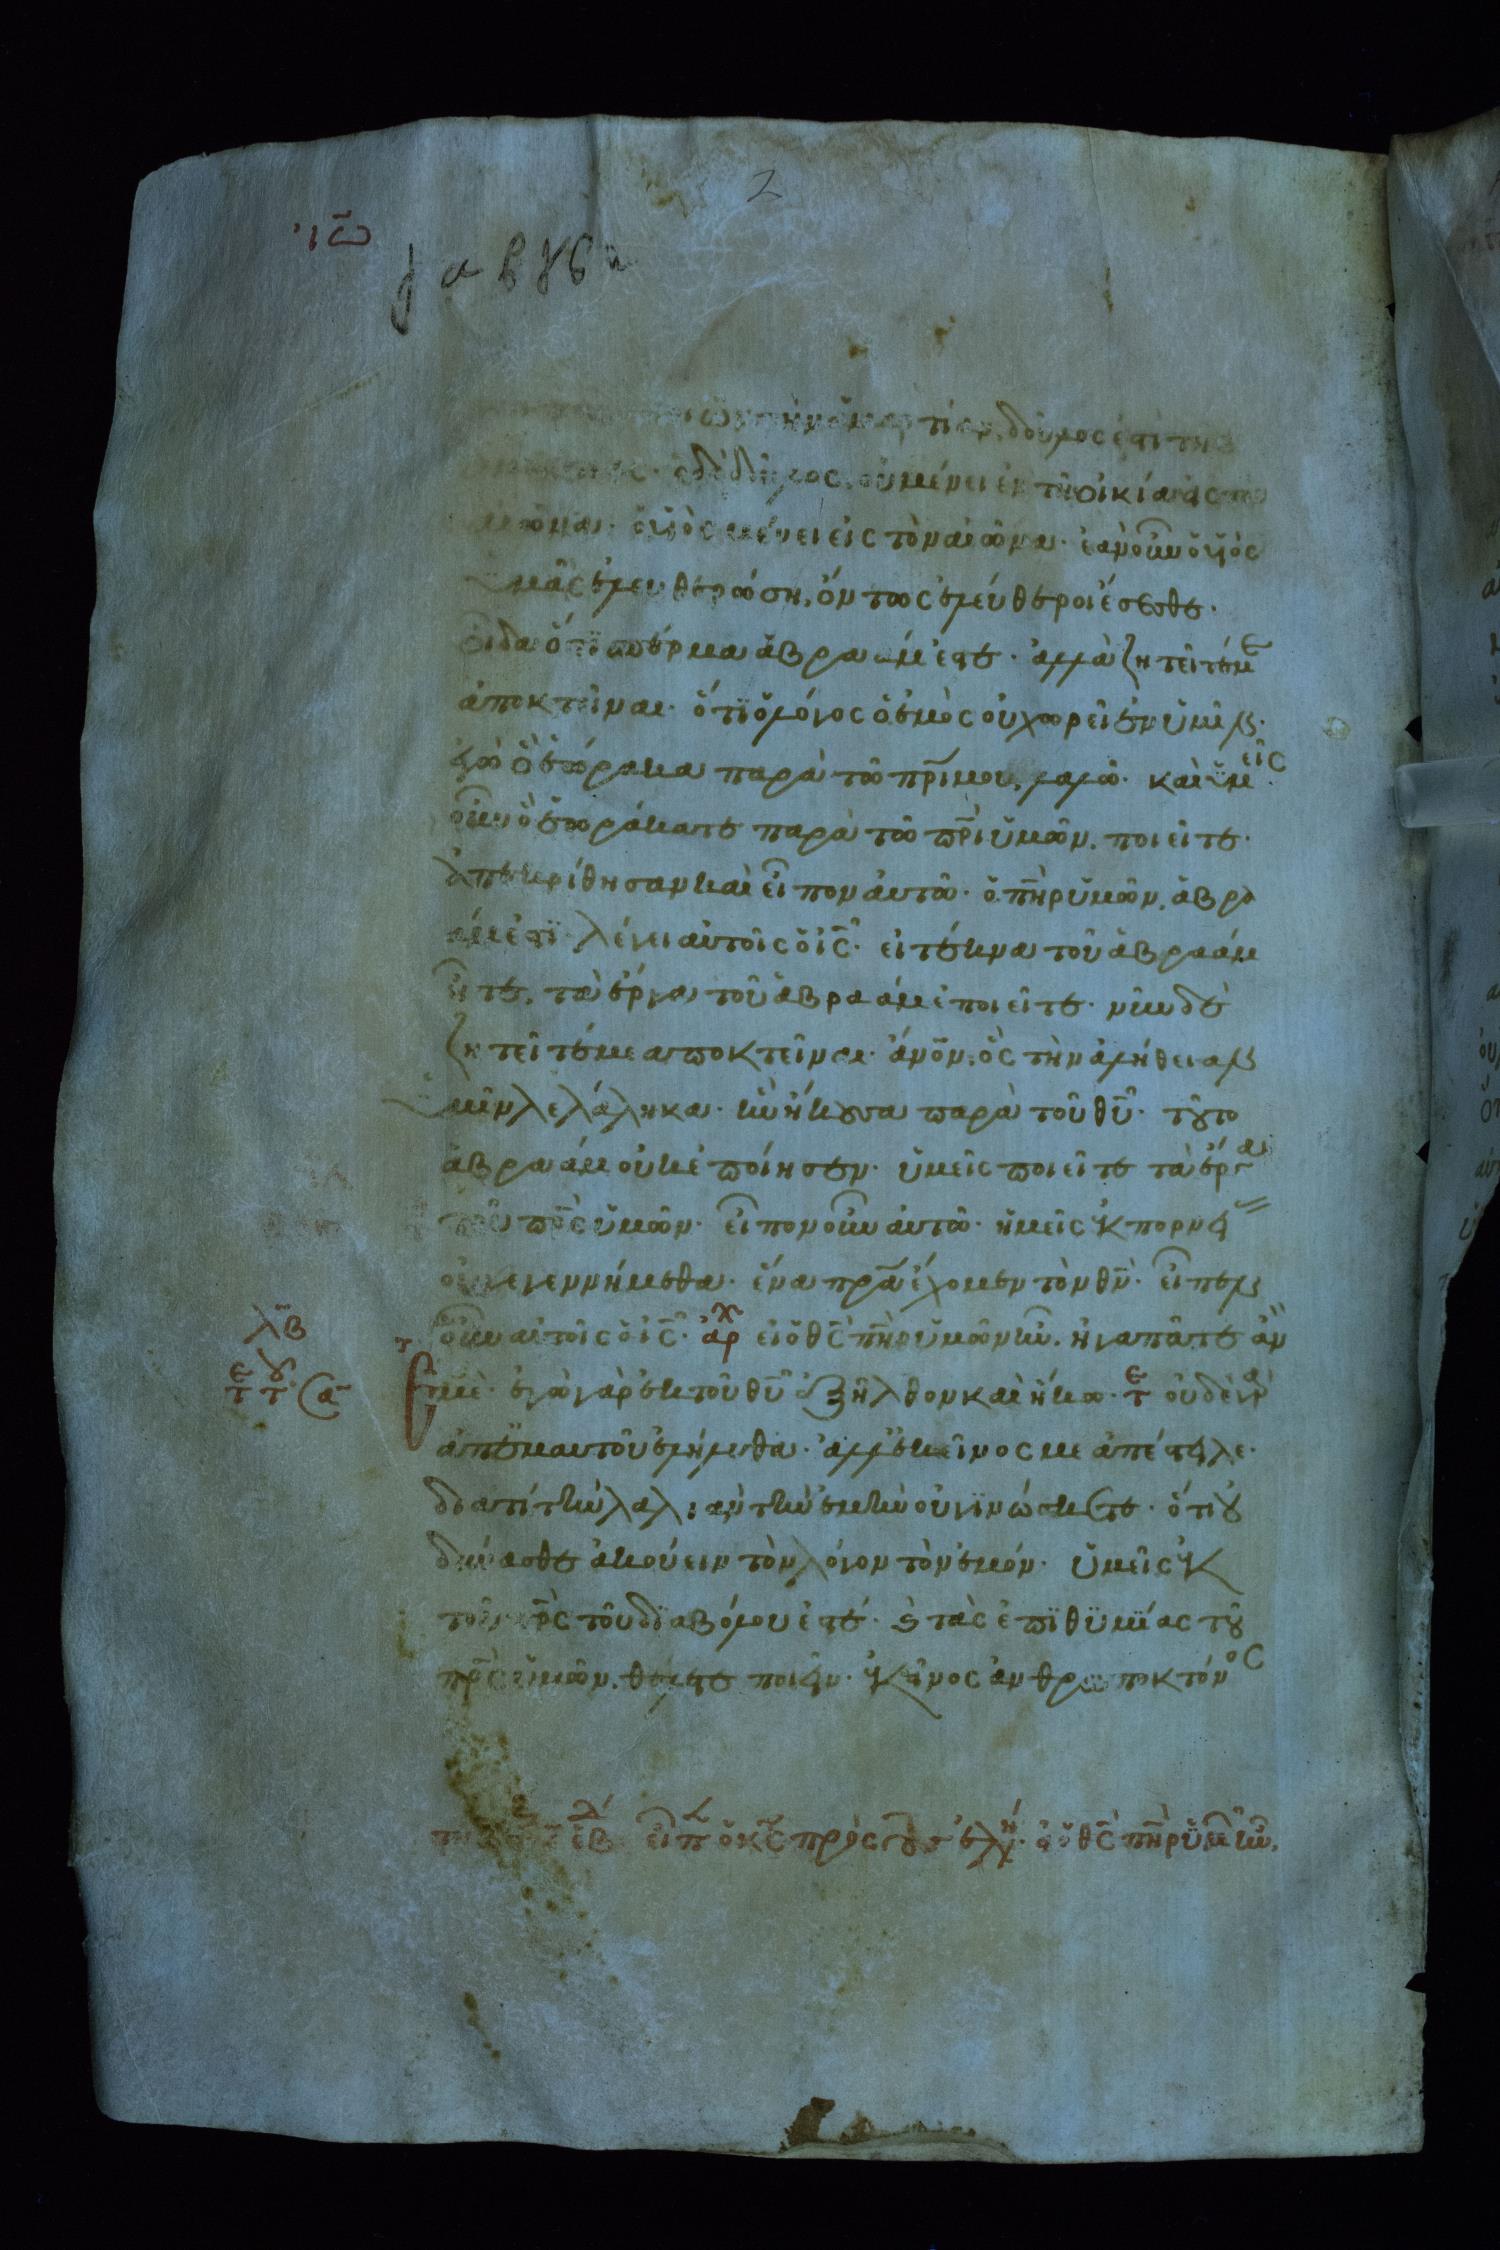 2
ἰω̄
τὴν ἁμαρτίαν, δοῦλός ἐστι τῆς
ὁ δὲ δοῦλος, οὐ μένει ἐν τῇ οἰκίᾳ εἰς τὸν
αἰῶνα· ὁ υἱὸς μένει εἰς τὸν αἰῶνα· ἐὰν οὖν ὁ υἱὸς
ὑμᾶς ἐλευθερώσῃ, ὄντως ἐλεύθεροι ἔσεσθε·
οἶδα ὅτι σπέρμα ἀβραάμ ἐστε· ἀλλὰ ζητεῖτέ με
ἀποκτεῖναι· ὅτι ὁ λόγος ὁ ἐμὸς οὐ χωρεῖ ἐν ὑμῖν·
ἐγὼ ὃ ἑώρακα παρὰ τῶ πρ̄ι μου, λαλῶ· καὶ ὑμεῖς
οὖν ὃ ἑωράκατε παρὰ τῶ πρ̄ι ὑμῶν, ποιεῖτε·
ἀπεκρίθησαν καὶ εἶπον αὐτῶ· ὁ πη̄ρ ὑμῶν, ἀβρα
άμ ἐστι· λέγει αὐτοῖς ὁ ις̄· εἰ τέκνα τοῦ ἀβραάμ
ἦτε, τὰ ἔργα τοῦ ἀβραάμ ἐποιεῖτε· νῦν δὲ
ζητεῖτέ με ἀποκτεῖναι· ἄνο̄ν, ὃς τὴν ἀλήθειαν
ὑμῖν λελάληκα· ἣν ἤκουσα παρὰ τοῦ θῡ· τοῦτο
ἀβραάμ οὐκ ἐποίησεν· ὑμεῖς ποιεῖτε τὰ ἔργα
τοῦ πρ̄ς ὑμῶν· εἶπον οὖν αὐτῶ· ἡμεῖς ἐκ πορνεί
οὐ γεγεννήμεθα· ἕνα πρ̄α ἔχομεν τὸν θν̄· εἶπεν
οὖν αὐτοῖς ὁ ις̄· ἀρχ εἰ ὁ θς̄ πη̄ρ ὑμῶν ἦν, ἠγαπᾶτε ἂν
λβ
ἐμέ· ἐγὼ γὰρ ἐκ τοῦ θῡ ἐξῆλθον καὶ ἥκω· τε οὐδὲ γὰρ
ἀπ' ἐμαυτοῦ ἐλήλυθα· ἀλλ' ἐκεῖνός με ἀπέστειλε·
διατί τὴν λαλιὰν τὴν ἐμὴν οὐ γινώσκετε· ὅτι οὐ
δύνασθε ἀκούειν τὸν λόγον τὸν ἐμόν· ὑμεῖς ἐκ
τοῦ πρ̄ς τοῦ διαβόλου ἐστέ· καὶ τὰς ἐπιθυμίας τοῦ
πρ̄ς ὑμῶν, θέλετε ποιεῖν· ἐκεῖνος ἀνθρωποκτόνος
εἶπ ὁ κς̄ πρὸς τοὺς ἐλη· εἰ ὁ θς̄ πη̄ρ ὑμῶν ἦν,